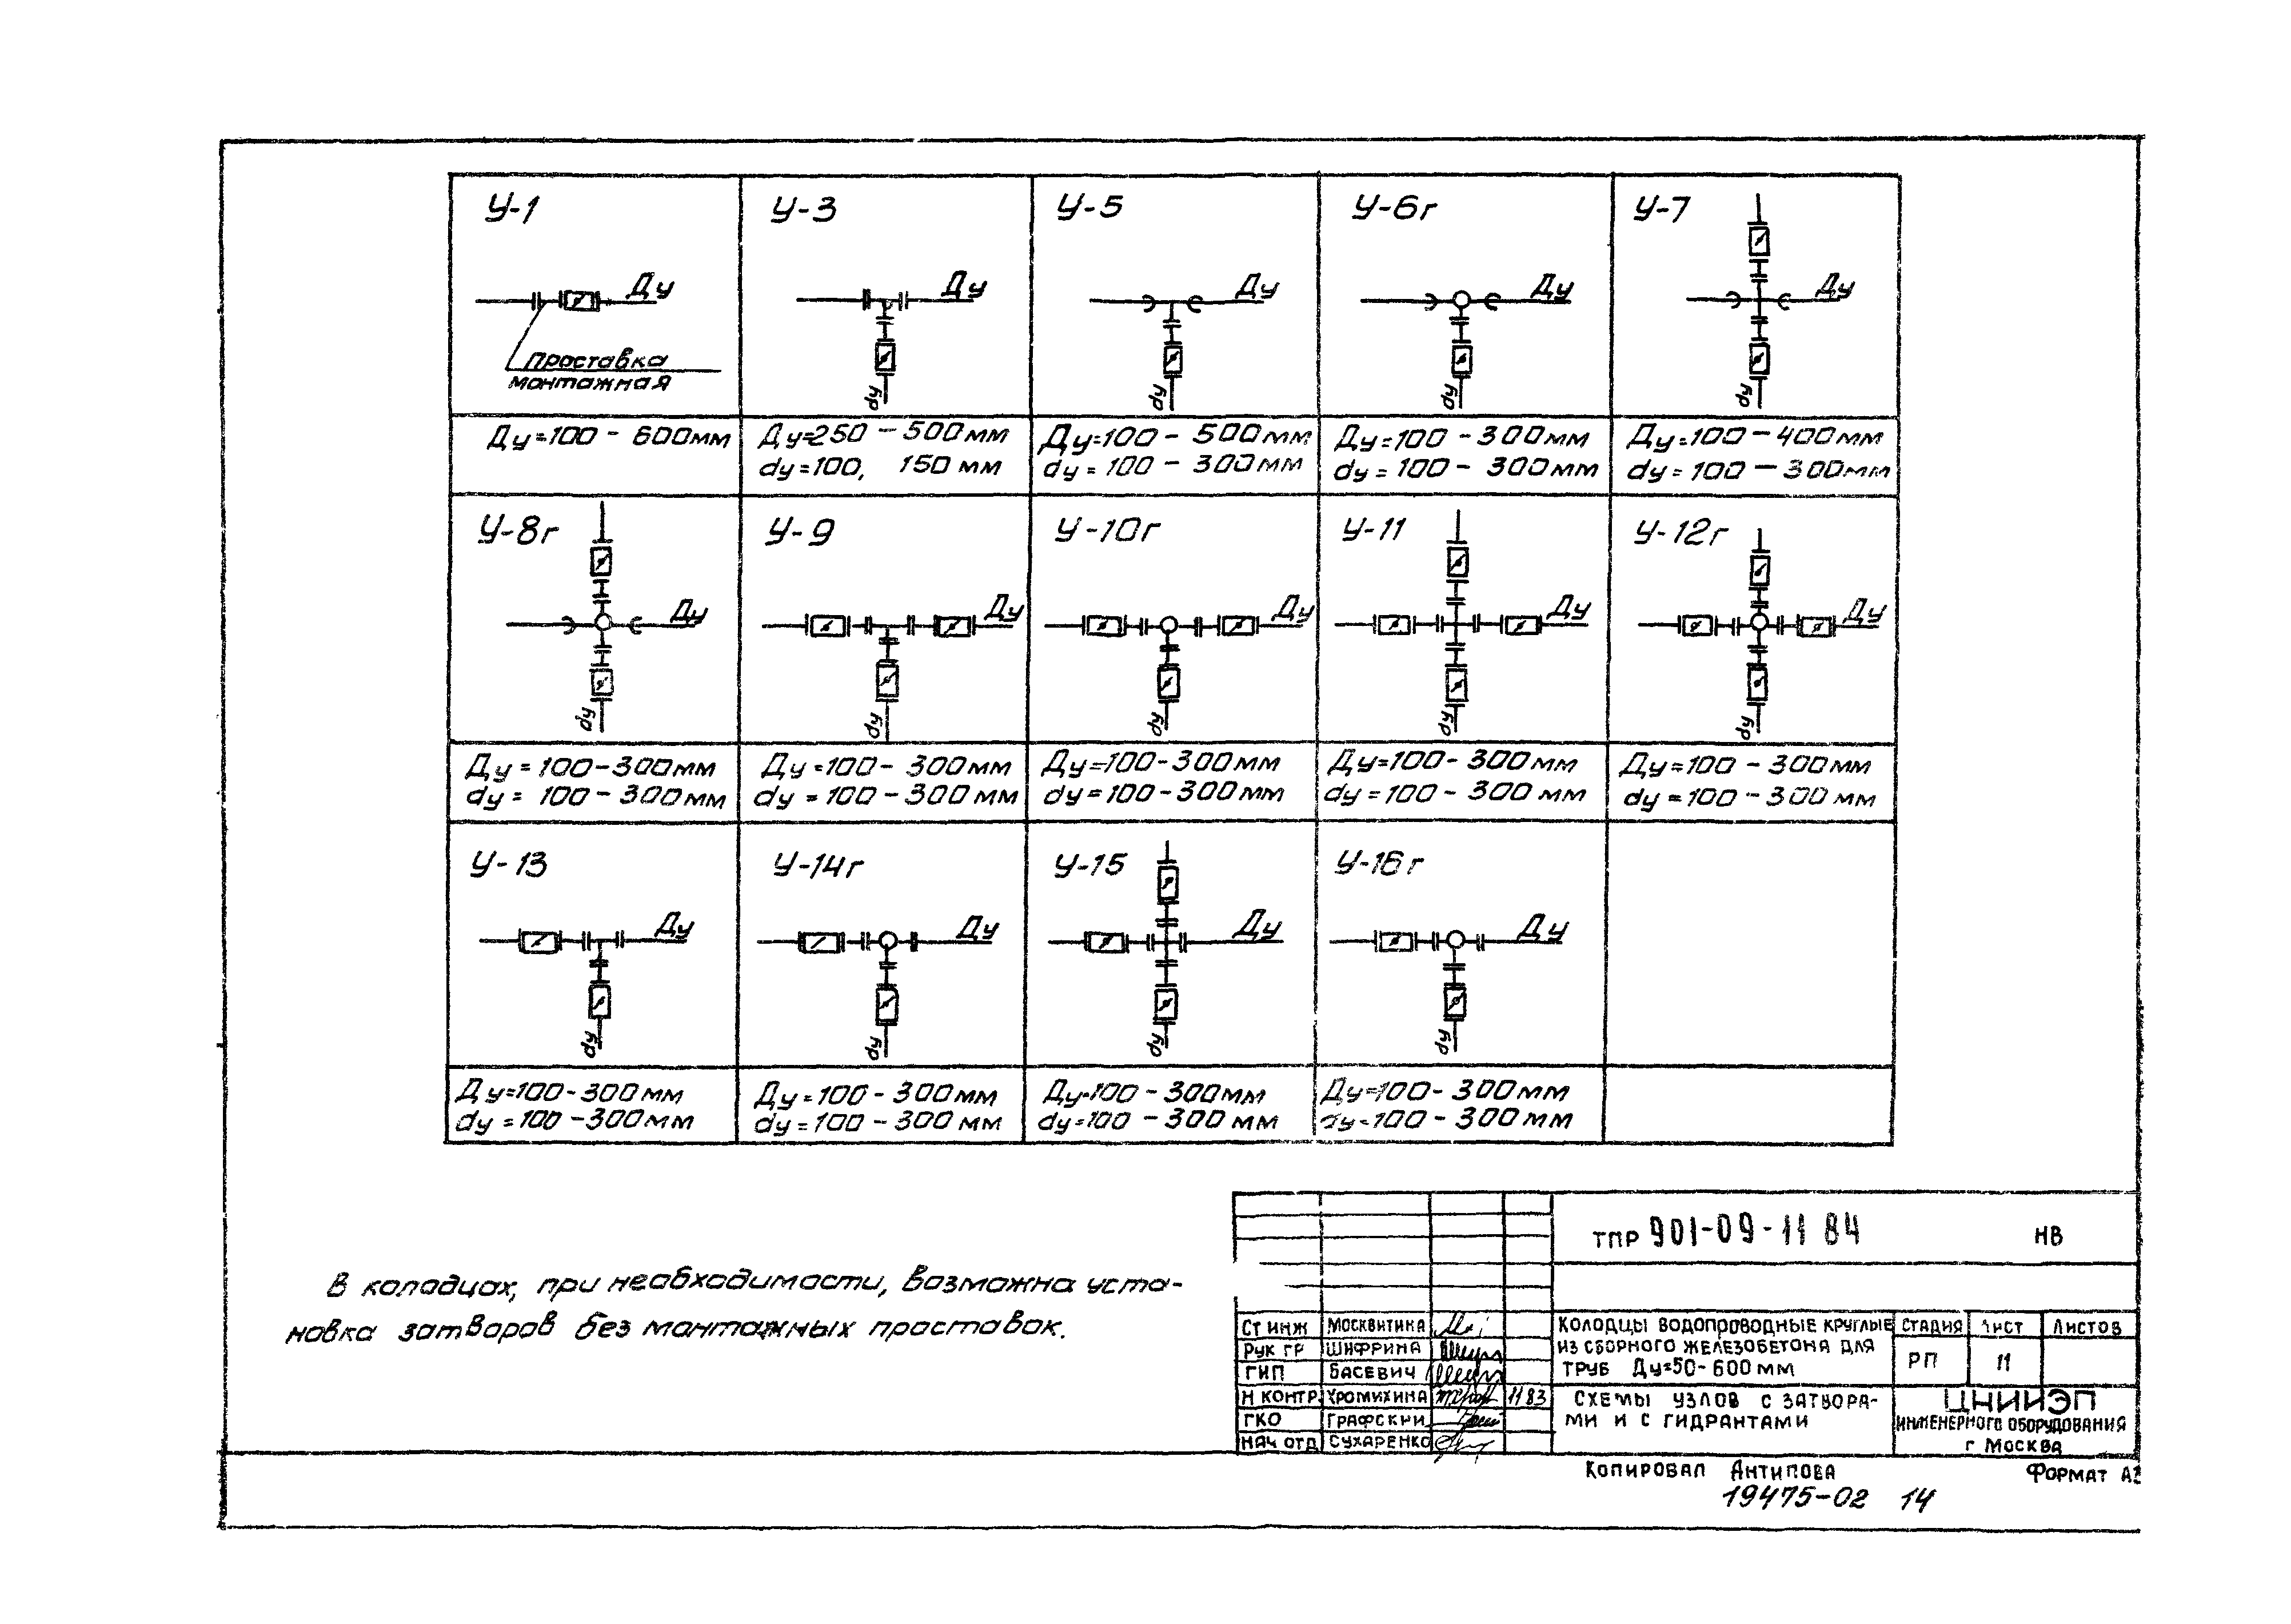 У-1
Ду
проставка
монтажная
Ду=100 - 600мм
У-3
Ду
dу
Ду=250 - 500мм
dу=100, 150 мм
У-5
Ду
dу
Ду=100 - 500мм
dу = 100 - 300мм
У-6г
Ду
dу
Ду=100 - 300мм
dу = 100 - 300мм
У-7
Ду
dу
Ду=100 - 400мм
dу = 100 - 300мм
У-8г
Ду
dу
Ду = 100 - 300мм
dу = 100 - 300мм
У-9
Ду
dу
Ду=100 - 300мм
dу = 100 - 300мм
У-10г
Ду
dу
Ду=100 - 300мм
dу=100 - 300мм
У-11
Ду
dу
Ду=100 - 300мм
dу = 100 - 300 мм
У-12г
Ду
dу
Ду=100 - 300мм
dу =100 - 300 мм
У-13
Ду
dу
Ду=100 - 300мм
dу =100 - 300мм
У-14г
Ду
dу
Ду=100 - 300мм
dу =100 - 300 мм
У-15
Ду
dу
Ду=100 - 300мм
dу=100 - 300 мм
У-16г
Ду
dу
Ду=100 - 300мм
dу=100 - 300 мм
В колодцах, при необходимости, возможна уста-
новка затворов без монтажных проставок.
ТПР 901-09-11 84 НВ
Ст инж Москвитина
Рук гр Шифрина
ГИП Басевич
Н контр Хромихина 11 83
ГКО Графский
Нач отд Сухаренко
Колодцы водопроводные круглые
из сборного железобетона для
труб Ду=50-600мм
Стадия Лист Листов
РП 11
Схемы узлов с затвора-
ми и с гидрантами
ЦНИИЭП
инженерного оборудования
г Москва
Копировал Антипова Формат
19475-02 14